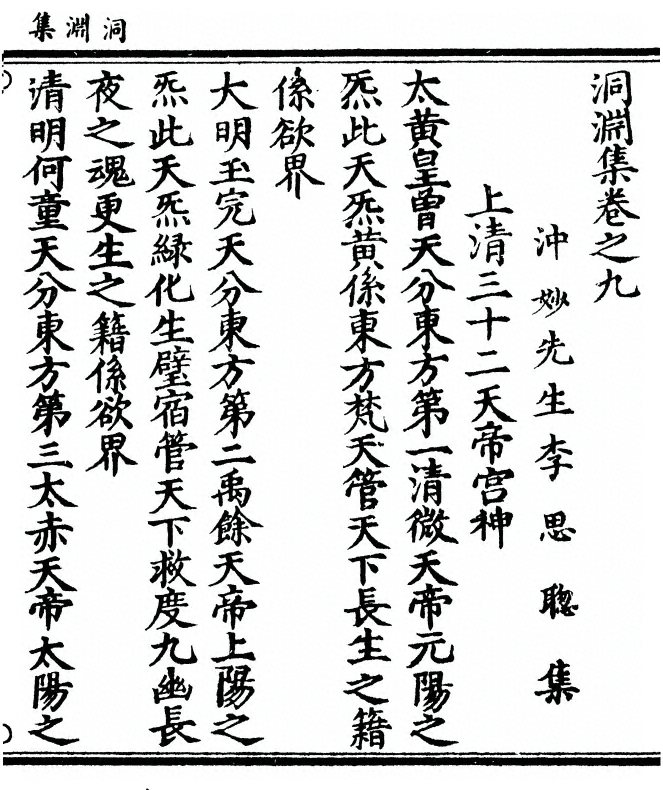 洞淵集
洞淵集卷之九
沖妙先生李思聰集
上清三十二天帝宮神
太黃皇曾天分東方第一清微天帝元陽之
炁此天炁黃係東方梵天管天下長生之籍
係欲界
大明玉完天分東方第二禹餘天帝上陽之
炁此天炁綠化生壁宿管天下救度九幽長
夜之魂更生之籍係欲界
清明何童天分東方第三太赤天帝太陽之